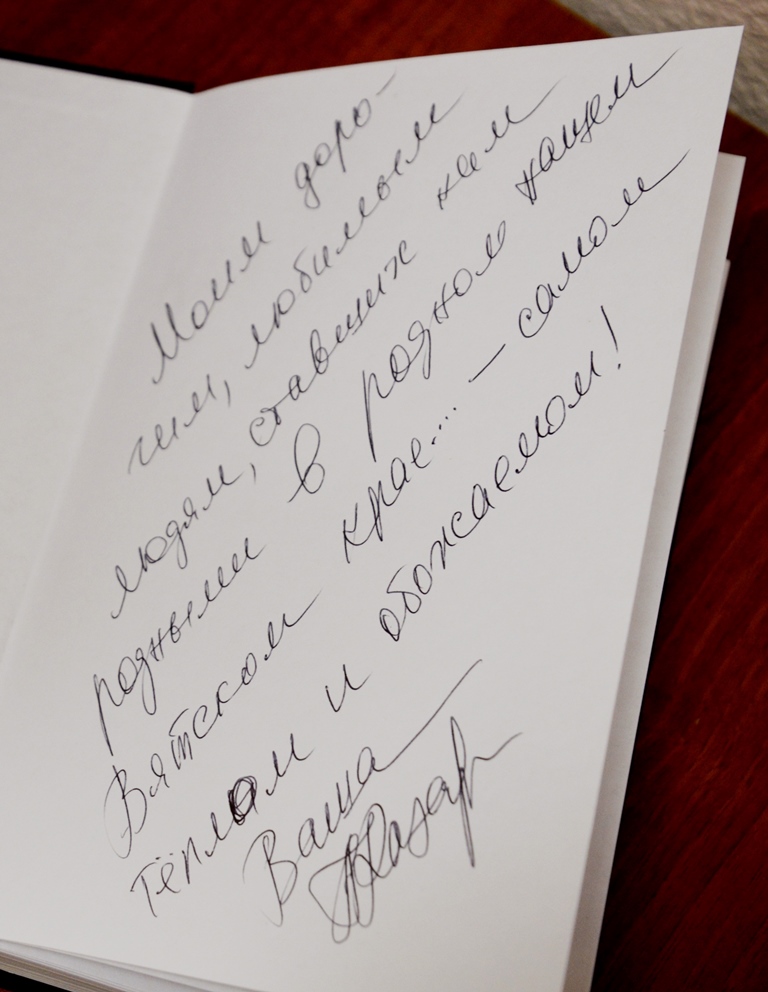 Моим доро-
гим, любимым
людям, ставших нам
родными в родном нашем
Вятском крае... – самом
тёплом и обожаемом!
Ваша